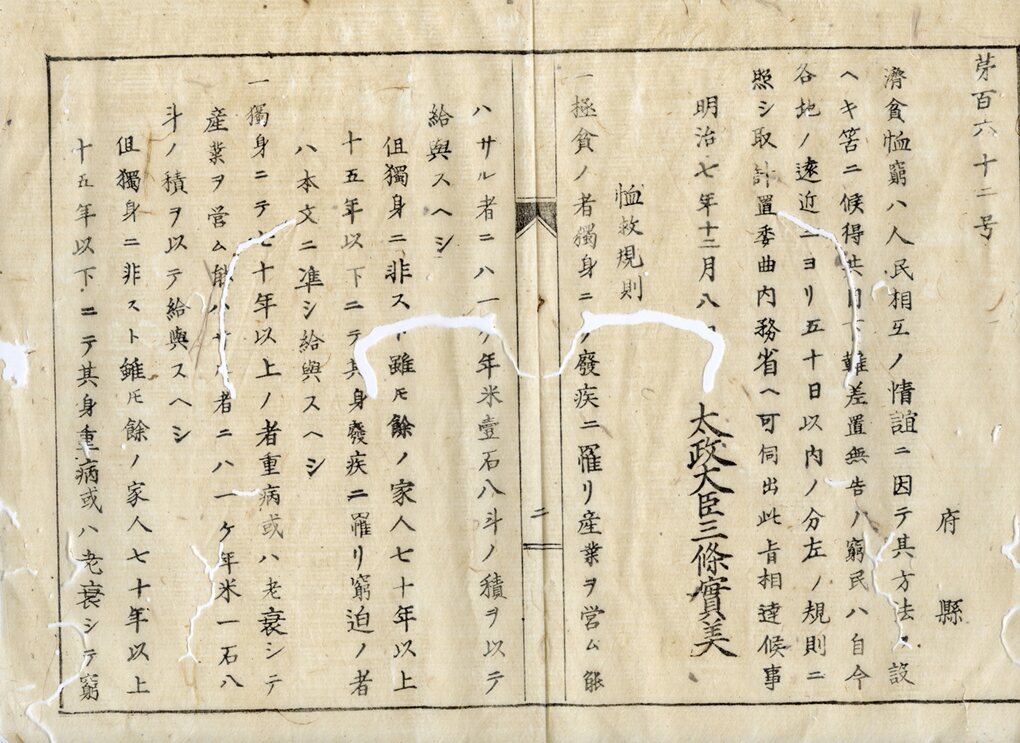 第百六十二号
府縣
濟貧恤窮ハ人民相互ノ情誼ニ因テ其方法ヲ設
ヘキ筈ニ候得共目下難差置無告ノ窮民ハ自今
各地ノ遠近ニヨリ五十日以内ノ分左ノ規則ニ
照シ取計置委曲内務省ヘ可伺出此旨相達候事
明治七年十二月八
太政大臣三條實美
恤救規則
一極貧ノ者獨身ニ廢疾ニ罹リ産業ヲ営ム能
二
ハサル者ニハ一ケ年米壹石八斗ノ積ヲ以テ
給與スヘシ
但獨身ニ非スト雖モ餘ノ家人七十年以上
十五年以下ニテ其身廢疾ニ罹リ窮迫ノ者
ハ本文ニ凖シ給與スヘシ
一獨身ニテ七十年以上ノ者重病或ハ老衰シテ
産業ヲ営ム能ハサル者ニハ一ケ年米一石八
斗ノ積ヲ以テ給與スヘシ
但獨身ニ非スト雖モ餘ノ家人七十年以上
十五年以下ニテ其身重病或ハ老衰シテ窮